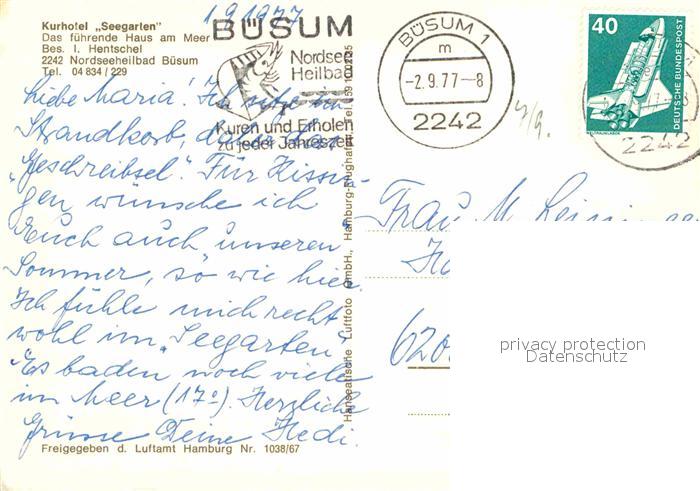 Kurhotel „Seegarten"
Das führende Haus am Meer
Bes. I. Hentschel
2242 Nordseeheilbad Büsum
Tel. 04 834 / 229
1.9.1977
BÜSUM
Nordsee
Heilbad
Kuren und Erholen
zu jeder Jahreszeit
BÜSUM 1
m
-2.9.77-8
2242
40
DEUTSCHE BUNDESPOST
WELTRAUMLABOR
2242
Liebe Maria! Ich sitze im
Strandkorb, daher das
„Geschreibsel". Für Kissin-
gen wünsche ich
Euch auch unseren
Sommer, so wie hier.
Ich fühle mich recht
wohl im „Seegarten".
Es baden noch viele
im Meer (17°). Herzliche
Grüsse Deine Hedi.
Freigegeben d. Luftamt Hamburg Nr. 1038/67
Hanseatische Luftfoto GmbH., Hamburg-Flughafen
Frau M.
620
privacy protection
Datenschutz